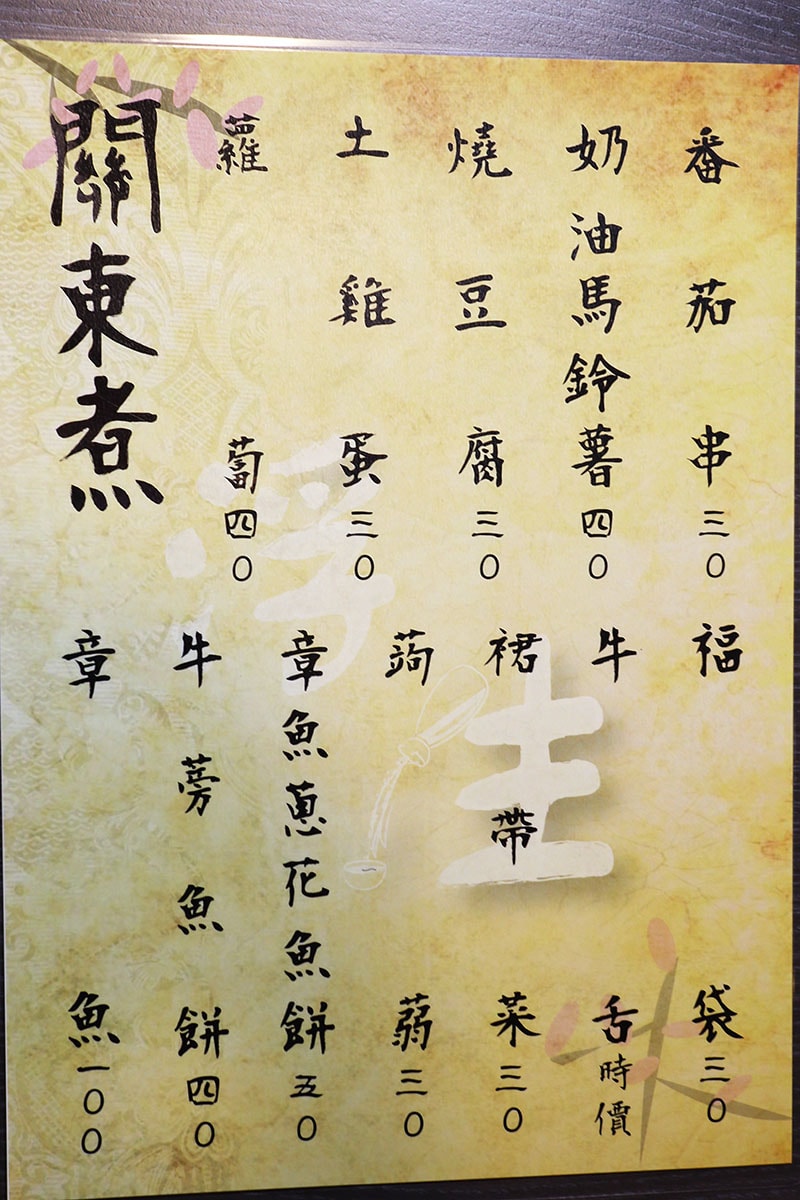 關東煮
番茄串三0
奶油馬鈴薯四0
燒豆腐三0
土雞蛋三0
蘿蔔四0
福袋三0
牛舌時價
裙帶菜三0
蒟蒻三0
章魚蔥花魚餅五0
牛蒡魚餅四0
章魚一00
浮生